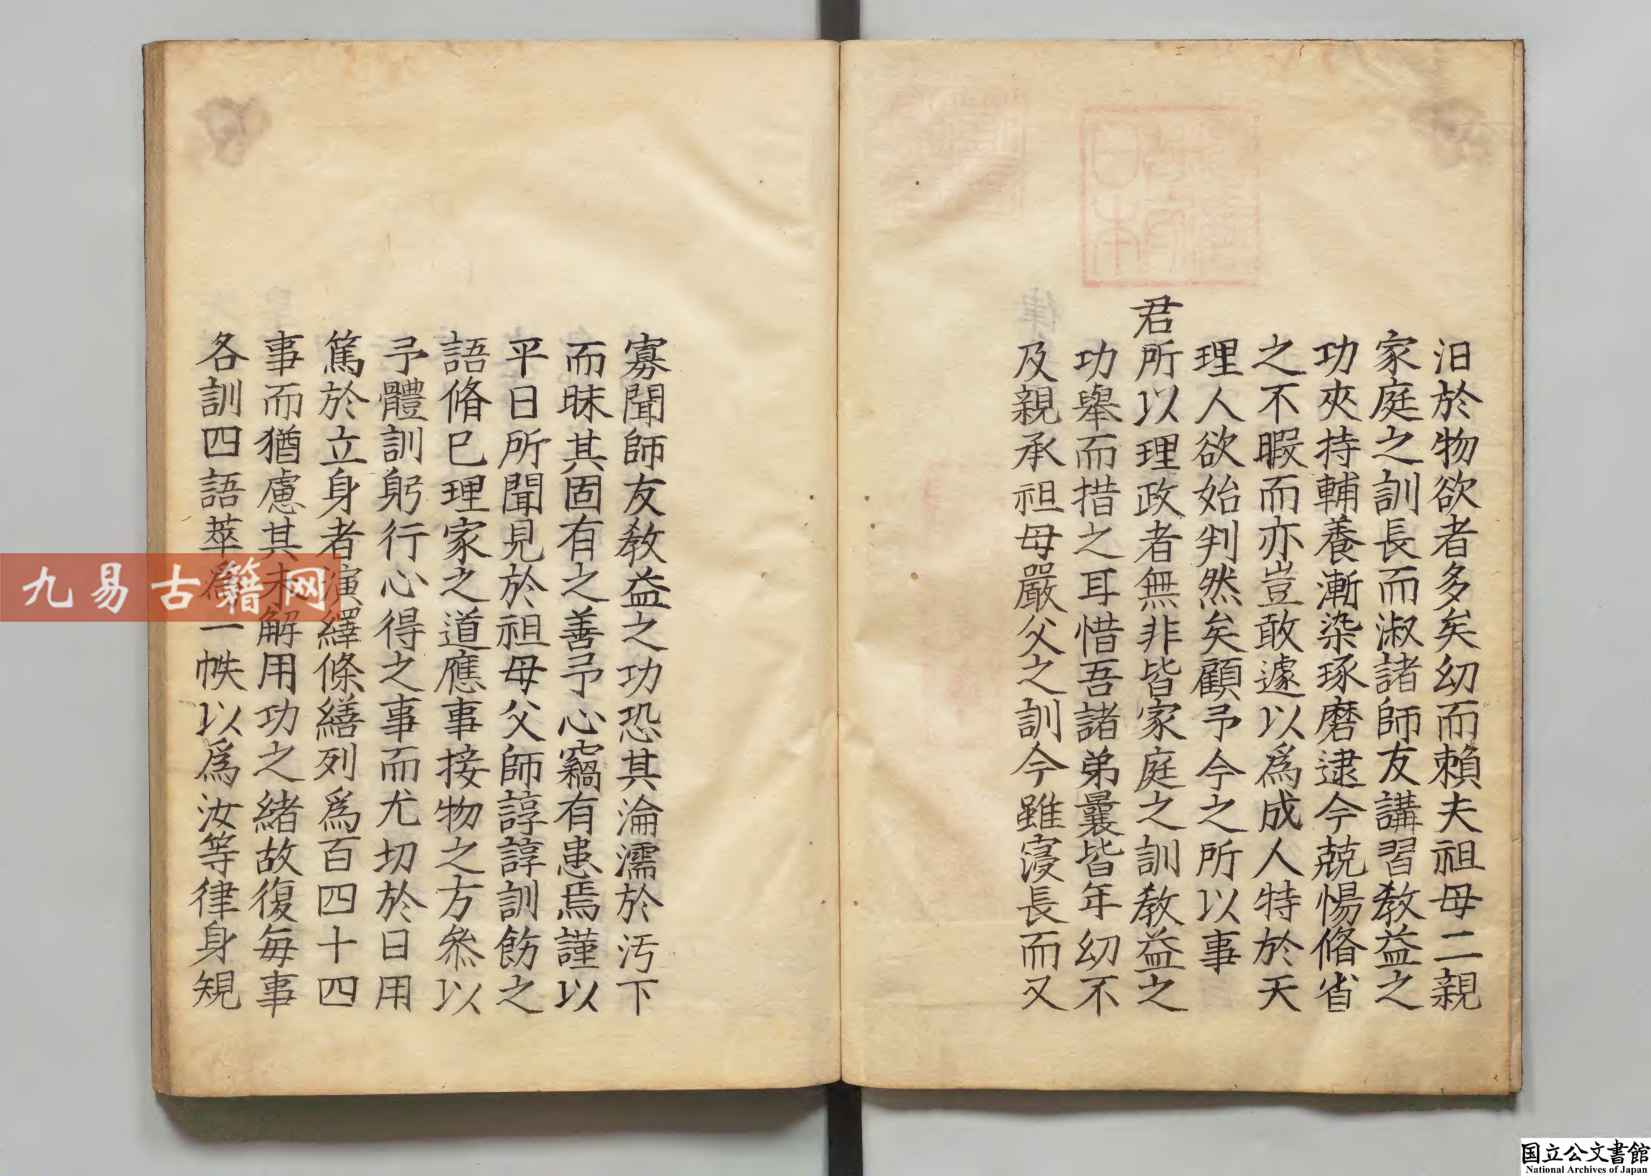 汨於物欲者多矣幼而賴夫祖母二親
家庭之訓長而淑諸師友講習教益之
功夾持輔養漸染琢磨逮今兢惕脩省
之不暇而亦豈敢遽以爲成人特於天
理人欲始判然矣顧予今之所以事
君所以理政者無非皆家庭之訓教益之
功舉而措之耳惜吾諸弟曩皆年幼不
及親承祖母嚴父之訓今雖寖長而又
寡聞師友教益之功恐其淪濡於汚下
而昧其固有之善予心竊有患焉謹以
平日所聞見於祖母父師諄諄訓飭之
語脩己理家之道應事接物之方叅以
予體訓躬行心得之事而尤切於日用
篤於立身者演繹條繕列爲百四十四
事而猶慮其未解用功之緒故復每事
各訓四語萃爲一帙以爲汝等律身規
九易古籍网
国立公文書館
National Archives of Japan